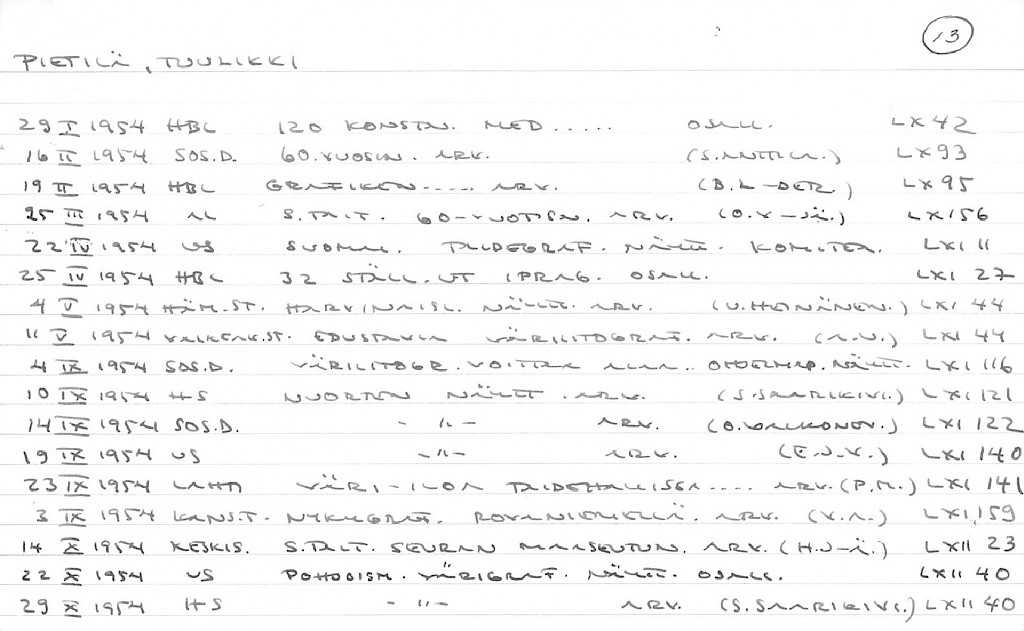 13
PIETILÄ, TUULIKKI
29 I 1954 HBL 120 KONSTN. MED ..... OSALL. LX 42
16 II 1954 SOS.D. 60.VUOSIN. ARV. (S.ANTTILA.) LX 93
19 II 1954 HBL GRAFIKEN ..... ARV. (B.L-DER) LX 95
25 III 1954 AL S.TAIT. 60-VUOTISN. ARV. (O.V-JÄ.) LX 156
22 IV 1954 US SUOMAL. TAIDEGRAF. NÄYTT. KOMITEA. LXI 11
25 IV 1954 HBL 32 STÄLL. UT I PRAG. OSALL. LXI 27
4 V 1954 HÄM.ST. HARVINAISL. NÄYTT. ARV. (U.HEINÄNEN.) LXI 44
11 V 1954 VALKEAK.ST. EDUSTAVIA VÄRILITOGRAF. ARV. (A.U.) LXI 44
4 IX 1954 SOS.D. VÄRILITOGR. VOITTAA ALAA.. NÄYTT. LXI 116
10 IX 1954 HS NUORTEN NÄYTT. ARV. (S.SAARIKIVI.) LXI 121
14 IX 1954 SOS.D. -"- ARV. (O.VALKONEN.) LXI 122
19 IX 1954 US -"- ARV. (E.J.V.) LXI 140
23 IX 1954 LAHTI VÄRI-ILOA TAIDEHALLISSA .... ARV. (P.M.) LXI 141
3 IX 1954 KANS.T. NYKYGRAF. ROVANIEMELLÄ. ARV. (V.A.) LXI,159
14 X 1954 KESKIS. S.TAIT. SEURAN MAASEUTUN. ARV. (H.J-Ä.) LXII 23
22 X 1954 US POHJOISM. VÄRIGRAF. NÄYTT. OSALL. LXII 40
29 X 1954 HS -"- ARV. (S.SAARIKIVI.) LXII 40